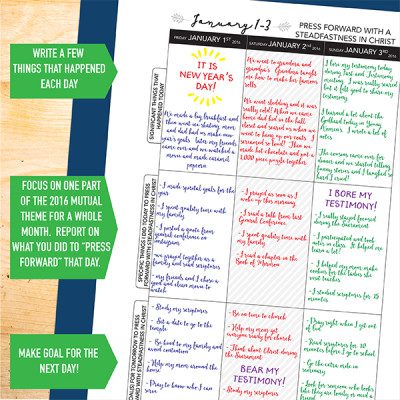 WRITE A FEW
THINGS THAT HAPPENED
EACH DAY
FOCUS ON ONE PART
OF THE 2016 MUTUAL
THEME FOR A WHOLE
MONTH. REPORT ON
WHAT YOU DID TO "PRESS
FORWARD" THAT DAY.
MAKE GOAL FOR THE
NEXT DAY!
January 1-3
PRESS FORWARD WITH A
STEADFASTNESS IN CHRIST
FRIDAY JANUARY 1ST 2016
SATURDAY JANUARY 2ND 2016
SUNDAY JANUARY 3RD 2016
SIGNIFICANT THINGS THAT
HAPPENED TODAY
IT IS
NEW YEAR'S
DAY!
We made a big breakfast and
then went on skating. mom
and dad had us make new
year's goals. later my friends
came over and we watched a
movie and made caramel
popcorn
We went to grandma and
grandpa's. Grandma taught
me how to make her famous
rolls
We went sledding and it was
really cold. When we came
home dad hid in the hall
closet and scared us when we
went to hang up our coats. I
screamed so loud! Then we
made hot chocolate and put a
1,000 piece puzzle together.
I bore my testimony today
during Fast and Testimony
meeting. I was really scared
but it felt good to share my
testimony.
I learned a lot about the
Godhead today in Young
Womens. I wrote a lot of
notes.
The cousins came over for
dinner and we started telling
funny stories and I laughed so
hard I cried!
SPECIFIC THINGS I DID TODAY TO PRESS
FORWARD WITH STEADFASTNESS IN CHRIST
- I made spiritual goals for the
year
- I spent quality time with
my family
- I posted a quote from
general conference on
instagram
- we prayed as a family
and read scriptures
- my friends and I chose a
good and clean movie to
watch
- I prayed as soon as I
woke up this morning
- I read a talk from last
General Conference
- I spent quality time with
my family
- I read a chapter in the
Book of Mormon
I BORE MY
TESTIMONY!
- I really stayed focused
during the Sacrament
- I participated and took
notes in class. It helped me
learn a lot!
- I helped my mom make
cookies for the ladies she
visit teaches
- I studied scriptures for 15
minutes
GOALS FOR TOMORROW TO PRESS
FORWARD WITH STEADFASTNESS IN CHRIST
- Study my scriptures
- Set a date to go to the
temple
- Be kind to my family and
avoid contention
- Help my mom around the
house
- Pray to know who I can
serve
- Be on time to church
- Help my mom get
everyone ready for church
- Think about Christ during
the Sacrament
BEAR MY
TESTIMONY!
- Study my scriptures
- Pray right when I get out
of bed
- Read scriptures for 10
minutes before I go to school
- Go the extra mile in
seminary
- Look for someone who looks
like they are lonely at school